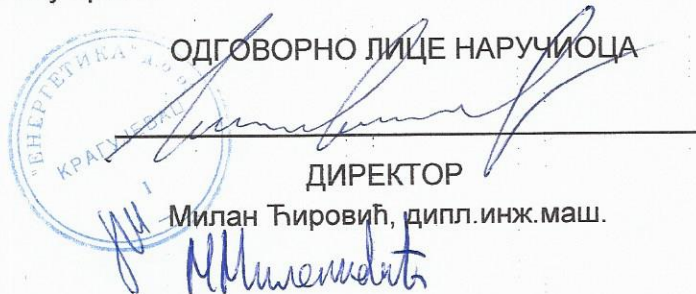 ОДГОВОРНО ЛИЦЕ НАРУЧИОЦА
"ЕНЕРГЕТИКА" д.о.о.
КРАГУЈЕВАЦ
I
ДИРЕКТОР
Милан Ћировић, дипл.инж.маш.